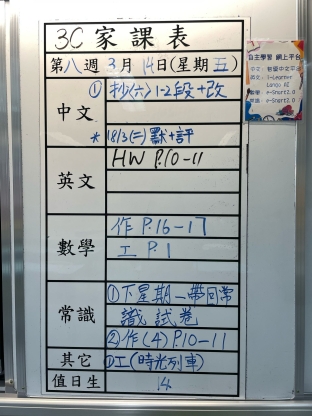 3C 家課表
第八週 3月 14日(星期五)
中文
① 抄(六) 1-2段+改
* 18/3(二) 默+評
英文
HW P.10-11
數學
作 P.16-17
工 P.1
常識
①下星期一帶回常
識試卷
②作(4) P.10-11
其它
①工(時光列車)
值日生
14
自主學習 網上平台